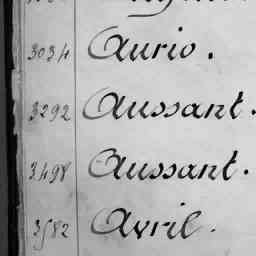 3034 Aurio.
3292 Aussant.
3498 Aussant.
3582 Avril.